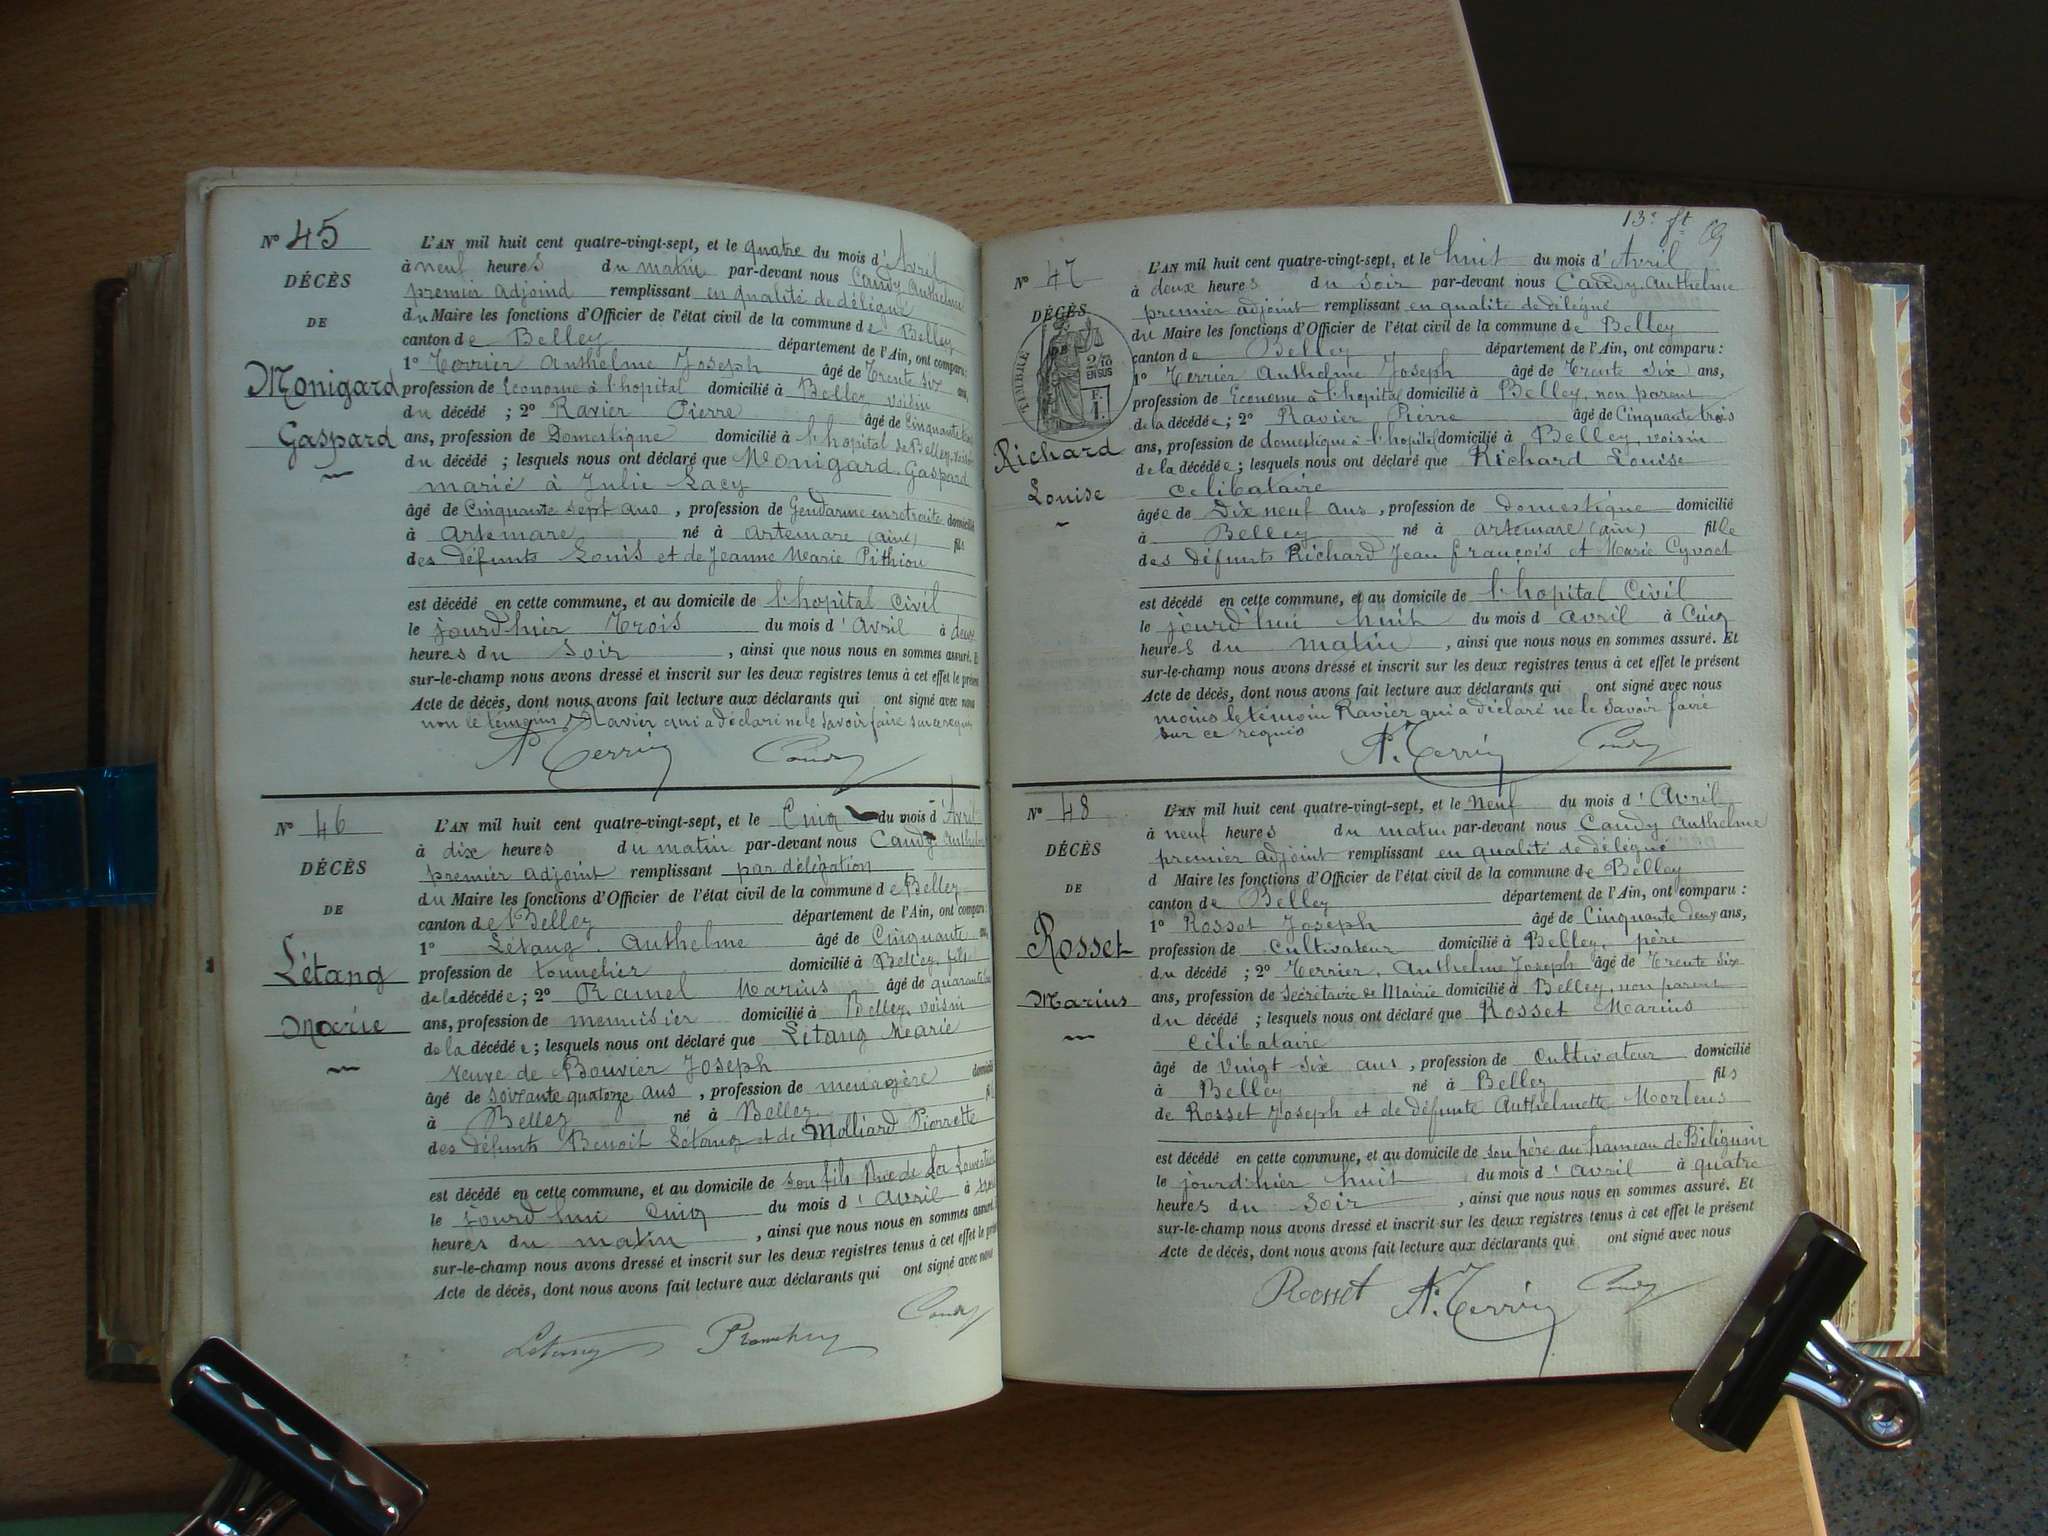 N° 45
DÉCÈS
DE
Monigard
Gaspard
L'AN mil huit cent quatre-vingt-sept, et le quatre du mois d'Avril
à neuf heures du matin par-devant nous Candy Anthelme
premier adjoind remplissant en qualité de délégué
du Maire les fonctions d'Officier de l'état civil de la commune de Belley
canton de Belley département de l'Ain, ont comparu:
1° Terrier Anthelme Joseph âgé de Trente Six ans,
profession de Econome à l'hopital domicilié à Belley, voisin
du décédé ; 2° Ravier Pierre âgé de Cinquante trois
ans, profession de Domestique domicilié à l'hopital de Belley, voisin
du décédé ; lesquels nous ont déclaré que Monigard Gaspard
marié à Julie Lacy
âgé de Cinquante sept ans , profession de Gendarme en retraite domicilié
à Artemare né à artemare (ain) fils
des défunts Louis et de Jeanne Marie Pithion
est décédé en cette commune, et au domicile de l'hopital Civil
le jourd'hier Trois du mois d'Avril à deux
heures du Soir , ainsi que nous nous en sommes assuré. Et
sur-le-champ nous avons dressé et inscrit sur les deux registres tenus à cet effet le présent
Acte de décès, dont nous avons fait lecture aux déclarants qui ont signé avec nous
non le témoins Ravier qui a déclaré ne le savoir faire sur ce requis
A. Terrier Candy
N° 46
DÉCÈS
DE
Létang
Marie
L'AN mil huit cent quatre-vingt-sept, et le Cinq du mois d'Avril
à dix heures du matin par-devant nous Candy Anthelme
premier adjoint remplissant par délégation
du Maire les fonctions d'Officier de l'état civil de la commune de Belley
canton de Belley département de l'Ain, ont comparu:
1° Létang Anthelme âgé de Cinquante ans,
profession de tonnelier domicilié à Belley, fils
de la décédée; 2° Ramel Marius âgé de quarante
ans, profession de menuisier domicilié à Belley, voisin
de la décédée; lesquels nous ont déclaré que Létang Marie
Veuve de Bouvier Joseph
âgé de soixante quatorze ans , profession de menagère domicilié
à Belley né à Belley
des défunts Benoit Létang et de Molliard Pierrette
est décédé en cette commune, et au domicile de son fils Rue de la
le jourd'hui Cinq du mois d'Avril à
heures du matin , ainsi que nous nous en sommes assuré. Et
sur-le-champ nous avons dressé et inscrit sur les deux registres tenus à cet effet le présent
Acte de décès, dont nous avons fait lecture aux déclarants qui ont signé avec nous
Candy
Letang
13e ft
69
N° 47
DÉCÈS
DE
TIMBRE
2/10
EN SUS
Richard
Louise
L'AN mil huit cent quatre-vingt-sept, et le huit du mois d'Avril
à deux heures du soir par-devant nous Candy, Anthelme
premier adjoint remplissant en qualité de délégué
du Maire les fonctions d'Officier de l'état civil de la commune de Belley
canton de Belley département de l'Ain, ont comparu:
1° Terrier Anthelme Joseph âgé de Trente Six ans,
profession de Econome à l'hopital domicilié à Belley, non parent
de la décédée; 2° Ravier Pierre âgé de Cinquante trois
ans, profession de domestique à l'hopital domicilié à Belley, voisin
de la décédée; lesquels nous ont déclaré que Richard Louise
celibataire
âgée de Dix neuf ans , profession de domestique domicilié
à Belley né à artemare (ain) fille
des défunts Richard Jean françois et Marie Cyvoct
est décédé en cette commune, et au domicile de l'hopital Civil
le jourd'hui huit du mois d'avril à Cinq
heures du matin , ainsi que nous nous en sommes assuré. Et
sur-le-champ nous avons dressé et inscrit sur les deux registres tenus à cet effet le présent
Acte de décès, dont nous avons fait lecture aux déclarants qui ont signé avec nous
moins le témoin Ravier qui a déclaré ne le savoir faire
sur ce requis
A. Terrier Candy
N° 48
DÉCÈS
DE
Rosset
Marius
L'AN mil huit cent quatre-vingt-sept, et le Neuf du mois d'Avril
à neuf heures du matin par-devant nous Candy Anthelme
premier adjoint remplissant en qualité de délégué
d Maire les fonctions d'Officier de l'état civil de la commune de Belley
canton de Belley département de l'Ain, ont comparu :
1° Rosset Joseph âgé de Cinquante deux ans,
profession de Cultivateur domicilié à Belley, père
du décédé ; 2° Terrier, Anthelme Joseph âgé de Trente Six
ans, profession de Secrétaire de Mairie domicilié à Belley, non parent
du décédé ; lesquels nous ont déclaré que Rosset Marius
célibataire
âgé de Vingt-six ans , profession de Cultivateur domicilié
à Belley né à Belley fils
de Rosset Joseph et de défunte Anthelmette Morlens
est décédé en cette commune, et au domicile de son père au hameau de Bilignin
le jourd'hier huit du mois d'avril à quatre
heures du Soir , ainsi que nous nous en sommes assuré. Et
sur-le-champ nous avons dressé et inscrit sur les deux registres tenus à cet effet le présent
Acte de décès, dont nous avons fait lecture aux déclarants qui ont signé avec nous
Rosset A. Terrier Candy